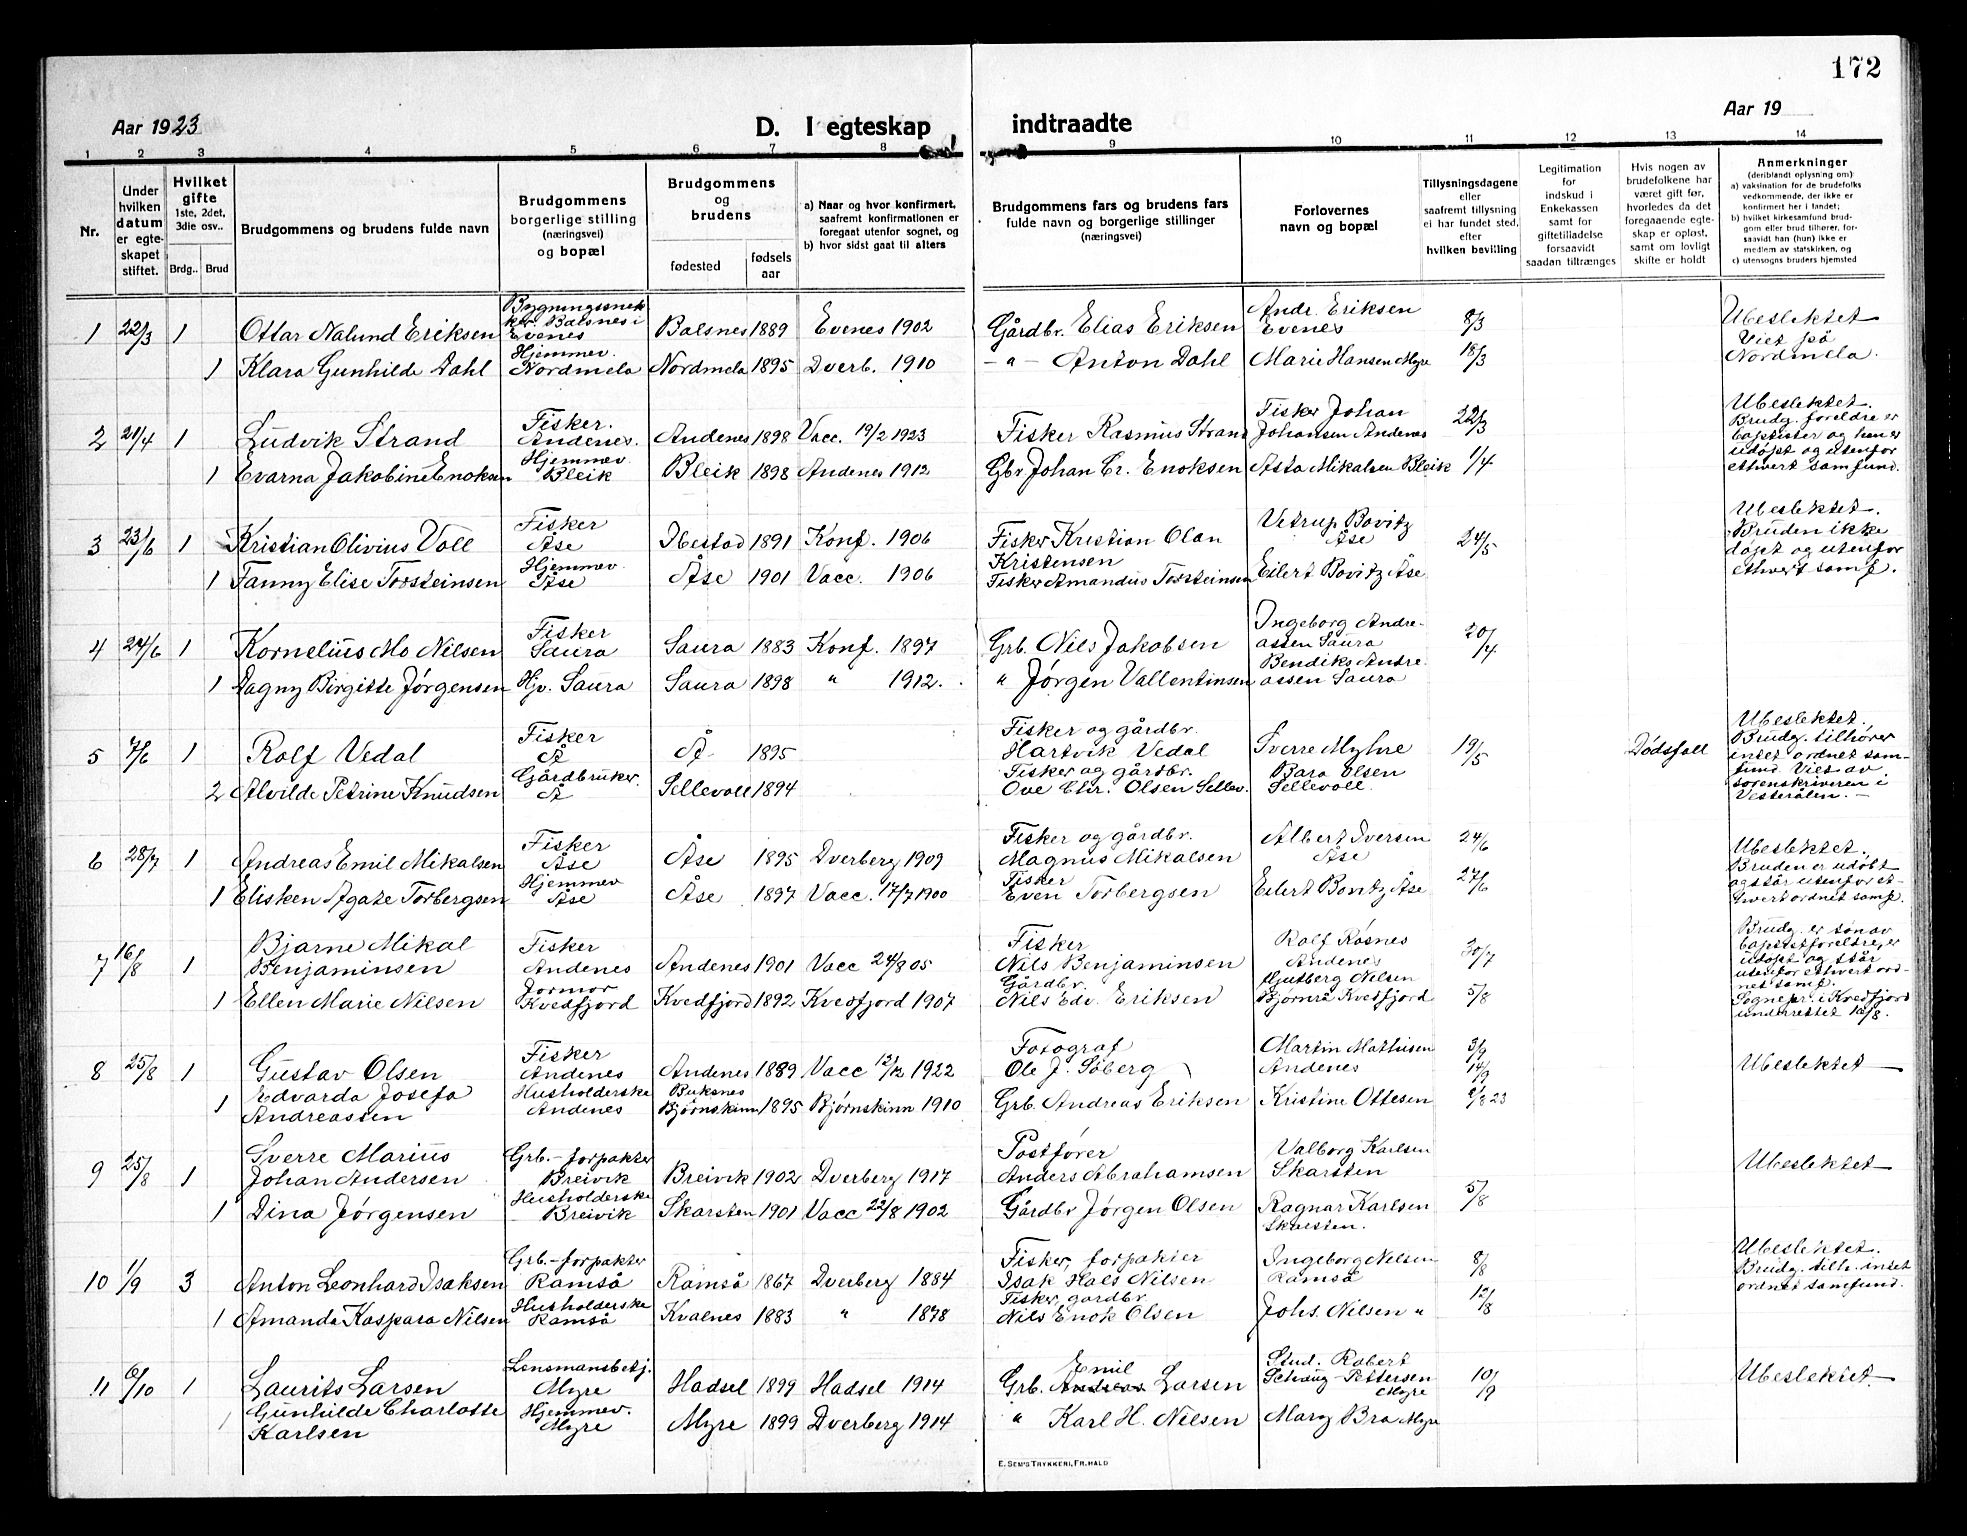 172
Aar 1923
D. I egteskap indtraadte
Aar 19
1 2 3 4 5 6 7 8 9 10 11 12 13 14
Nr.
Under hvilken datum er egteskapet stiftet.
Hvilket gifte 1ste, 2det, 3die osv..
Brdg.. Brud
Brudgommens og brudens fulde navn
Brudgommens borgerlige stilling (næringsvei) og bopæl
Brudgommens og brudens
fødested
fødsels aar
a) Naar og hvor konfirmert, saafremt konfirmationen er foregaat utenfor sognet, og
b) hvor sidst gaat til alters
Brudgommens fars og brudens fars fulde navn og borgerlige stillinger (næringsvei)
Forlovernes navn og bopæl
Tillysningsdagene eller saafremt tillysning ei har fundet sted, efter hvilken bevilling
Legitimation for indskud i Enkekassen samt for giftetilladelse forsaavidt saadan tiltrænges
Hvis nogen av brudefolkene har været gift før, hvorledes da det foregaaende egteskap er opløst, samt om lovligt skifte er holdt
Anmerkninger (deriblandt oplysning om): a) vaksination for de brudefolks vedkommende, der ikke er konfirmert her i landet; b) hvilket kirkesamfund brudgom eller brud tilhører, forsaavidt han (hun) ikke er medlem av statskirken, og c) utensogns bruders hjemsted
1 22/3 1 Ottar Nalund Eriksen Bygningssnekker. Balsnes i Evenes Balsnes 1889 Evenes 1902 Gårdbr. Elias Eriksen Andr. Eriksen Evenes 8/3 Ubeslektet Viet på Nordmela.
1 Klara Gunhilde Dahl Hjemmev. Nordmela Nordmela 1895 Dverb. 1910 - " - Anton Dahl Marie Hansen Myre 18/3
2 21/4 1 Ludvik Strand Fisker. Andenes. Andenes 1898 Vacc. 19/2 1923 Fisker Rasmus Strand Fisker Johan Johansen Andenes 22/3 Ubeslektet. Brudg. foreldre er baptister og han er udøpt og utenfor ethvert samfund.
1 Evarna Jakobine Enoksen Hjemmev Bleik Bleik 1898 Andenes 1912 Gbr Johan Cr. Enoksen Asta Mikalsen Bleik 1/4
3 23/6 1 Kristian Olivius Voll Fisker Åse Ibestad 1891 Konf. 1906 Fisker Kristian Olan Kristensen Vetrup Bovitz Åse 24/5 Ubeslektet. Bruden ikke døpt og utenfor ethvert samf.
1 Fanny Elise Torsteinsen Hjemmev. Åse Åse 1901 Vacc. 1906 Fisker Amandus Torsteinsen Eilert Bovitz Åse
4 24/6 1 Kornelius Mo Nilsen Fisker Saura Saura 1883 Konf. 1897 Grb. Nils Jakobsen Ingeborg Andreassen Saura 20/4
1 Dagny Birgitte Jørgensen Hjv. Saura Saura 1898 " 1912. " Jørgen Vallentinsen Bendiks Andreassen Saura
5 7/6 1 Rolf Vedal Fisker Å Å 1895 Fisker og gårdbr. Hartvik Vedal Sverre Myhre 19/5 Dødsfall Ubeslektet. Brudg. tilhører intet ordnet samfund. Viet av sorenskriveren i Vesterålen. -
2 Alvilde Petrine Knudsen Gårdbruker. Å Sellevoll 1894 Fisker og gårdbr. Ove Chr. Olsen Sellev. Bara Olsen Sellevoll.
6 28/7 1 Andreas Emil Mikalsen Fisker Åse Åse 1895 Dverberg 1909 Fisker og gårdbr. Magnus Mikalsen Albert Iversen Åse 24/6 Ubeslektet. Bruden er udøbt og står utenfor ethvert ordnet samf.
1 Elisken Agate Torbergsen Hjemmev Åse Åse 1897 Vacc. 17/7 1900 Fisker Even Torbergsen Eilert Bovitz Åse 27/6
7 16/8 1 Bjarne Mikal Benjaminsen Fisker Andenes Andenes 1901 Vacc 24/8 05 Fisker Nils Benjaminsen Rolf Røsnes Andenes 30/7 Brudg. er søn av baptistforeldre, er udøpt og står utenfor ethvert ordnet samf. Sognepr. i Kvedfjord underrettet 16/8.
1 Ellen Marie Nilsen Jormor Kvedfjord Kvedfjord 1892 Kvedfjord 1907 Gårdbr. Nils Edv. Eriksen Hjutberg Nilsen Bjørnrå Kvedfjord 5/8
8 25/8 1 Gustav Olsen Fisker Andenes Andenes 1889 Vacc 12/12 1922 Fotograf Ole J. Søberg Martin Mathisen Andenes 3/9 14/9 Ubeslektet
1 Edvarda Josefa Andreassen Husholderske Andenes Buksnes Bjørnskinn 1895 Bjørnskinn 1910 Grb. Andreas Eriksen Kristine Ottesen 2/8 23
9 25/8 1 Sverre Marius Johan Andersen Grb.-forpakter Breivik Breivik 1902 Dverberg 1917 Postfører Anders Abrahamsen Valborg Karlsen Skarsten Ubeslektet
1 Dina Jørgensen Husholderske Breivik Skarsten 1901 Vacc 22/8 1902 Gårdbr Jørgen Olsen Ragnar Karlsen Skarsten. 5/8
10 1/9 3 Anton Leonhard Isaksen Grb.-forpakter Ramså Ramså 1867 Dverberg 1884 Fisker, forpakter Isak Hals Nilsen Ingeborg Nilsen Ramså 8/8 Ubeslektet. Brudg. tilh. intet ordnet samfund.
1 Amanda Kaspara Nilsen Husholderske Ramså Kvalnes 1883 " 1898 Fisker, gardbr. Nils Enok Olsen Johs. Nilsen " 12/8
11 6/10 1 Laurits Larsen Lensmansbetj. Myre Hadsel 1899 Hadsel 1914 Grb. Emil Andreas Larsen Stud. Robert Schaug-Pettersen Myre 10/9 Ubeslektet.
1 Gunhilde Charlotte Karlsen Hjemmev. Myre Myre 1899 Dverberg 1914 " Karl H. Nilsen Mary Bra Myre
E. SEM'S TRYKKERI, FR. HALD